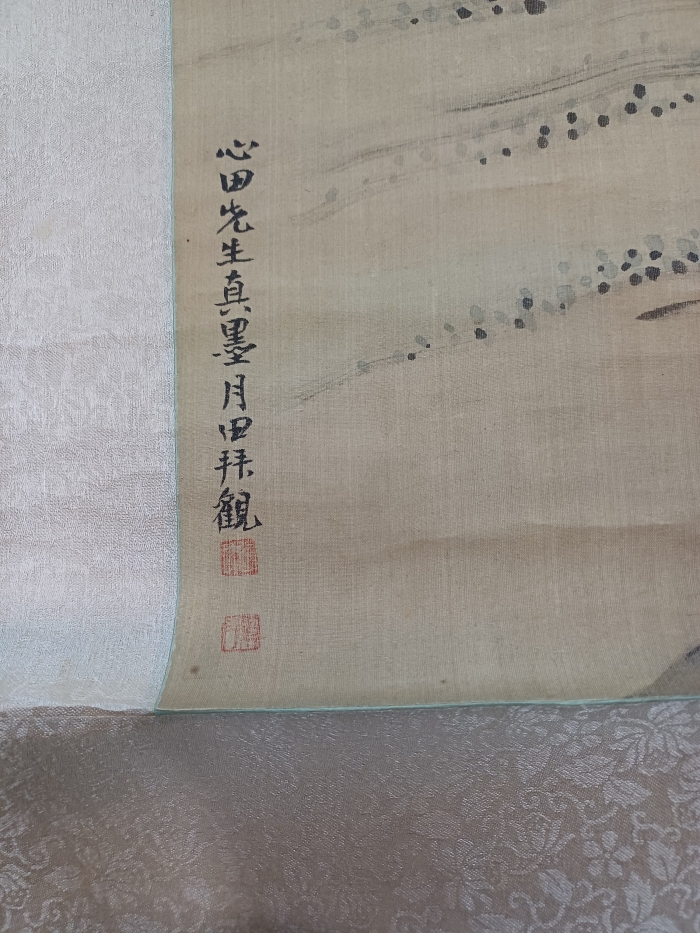 心田先生真墨月田拝観